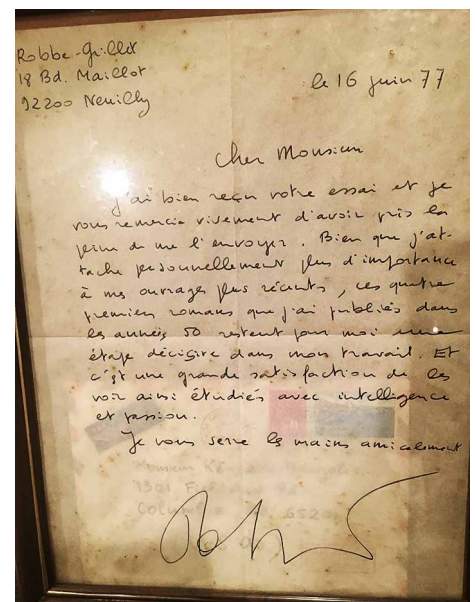 Robbe-Grillet
18 Bd. Maillot
92200 Neuilly
le 16 juin 77
Cher Monsieur
J'ai bien reçu votre essai et je
vous remercie vivement d'avoir pris la
peine de me l'envoyer. Bien que j'at-
tache personnellement plus d'importance
à mes ouvrages plus récents, ces quatre
premiers romans que j'ai publiés dans
les années 50 restent pour moi une
étape décisive dans mon travail. Et
c'est une grande satisfaction de les
voir ainsi étudiés avec intelligence
et passion.
Je vous serre les mains amicalement
Monsieur
1301
Columbia 6520